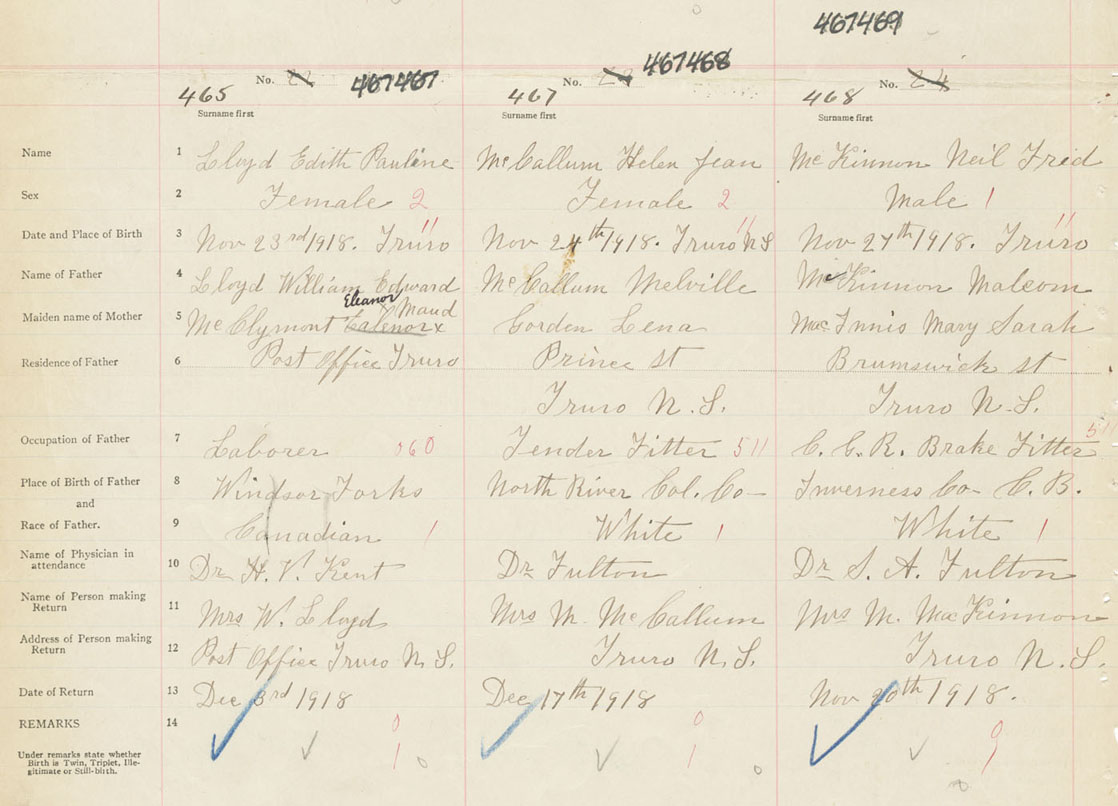 467469
No. 467467
No. 467468
No. 24
465
467
468
Surname first
Surname first
Surname first
Name 1 Lloyd Edith Pauline McCallum Helen Jean McKinnon Neil Fred
Sex 2 Female 2 Female 2 Male 1
Date and Place of Birth 3 Nov 23rd 1918. Truro 11 Nov 24th 1918. Truro N S 11 Nov 27th 1918. Truro 11
Name of Father 4 Lloyd William Edward McCallum Melville McKinnon Malcom
Eleanor
Maud
Maiden name of Mother 5 McClymont Ealenor x Gorden Lena MacInnis Mary Sarah
Residence of Father 6 Post Office Truro Prince St Brumswick St
Truro N.S. Truro N.S.
Occupation of Father 7 Laborer 060 Tender Fitter 511 C. G. R. Brake Fitter 511
Place of Birth of Father 8 Windsor Forks North River Col. Co- Inverness Co- C. B.
and
Race of Father. 9 Canadian 1 White 1 White 1
Name of Physician in
attendance 10 Dr H. V. Kent Dr Fulton Dr S. A. Fulton
Name of Person making
Return 11 Mrs W. Lloyd Mrs M. McCallum Mrs M. MacKinnon
Address of Person making
Return 12 Post Office Truro N. S. Truro N.S. Truro N.S.
Date of Return 13 Dec 3rd 1918 Dec 17th 1918 Nov 20th 1918.
REMARKS 14 0 0 0
Under remarks state whether
Birth is Twin, Triplet, Ille-
gitimate or Still-birth.
1 0 1 0 1 0